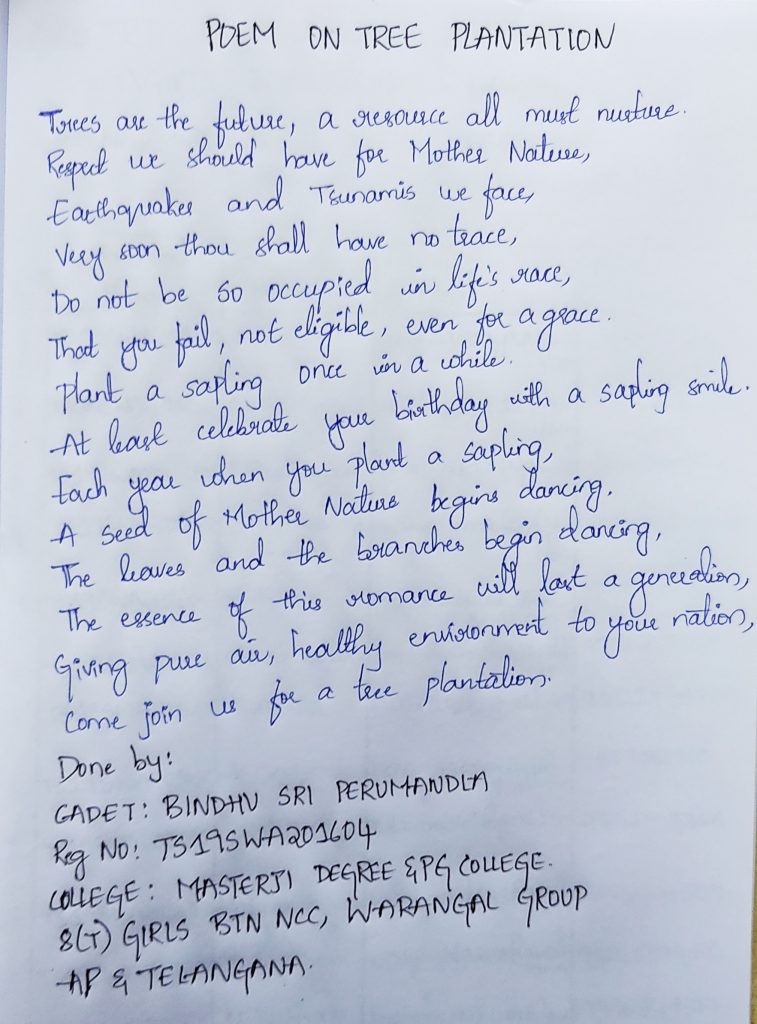 POEM ON TREE PLANTATION
Trees are the future, a resource all must nurture.
Respect we should have for Mother Nature,
Earthquakes and Tsunamis we face,
Very soon thou shall have no trace,
Do not be so occupied in life's race,
That you fail, not eligible, even for a grace.
Plant a sapling once in a while.
At least celebrate your birthday with a sapling smile.
Each year when you plant a sapling,
A seed of Mother Nature begins dancing.
The leaves and the branches begin dancing,
The essence of this romance will last a generation,
Giving pure air, healthy environment to your nation,
Come join us for a tree plantation.
Done by:
CADET: BINDHU SRI PERUMANDLA
Reg No: TS19SWA201604
COLLEGE: MASTERJI DEGREE & PG COLLEGE.
8(T) GIRLS BTN NCC, WARANGAL GROUP
AP & TELANGANA.